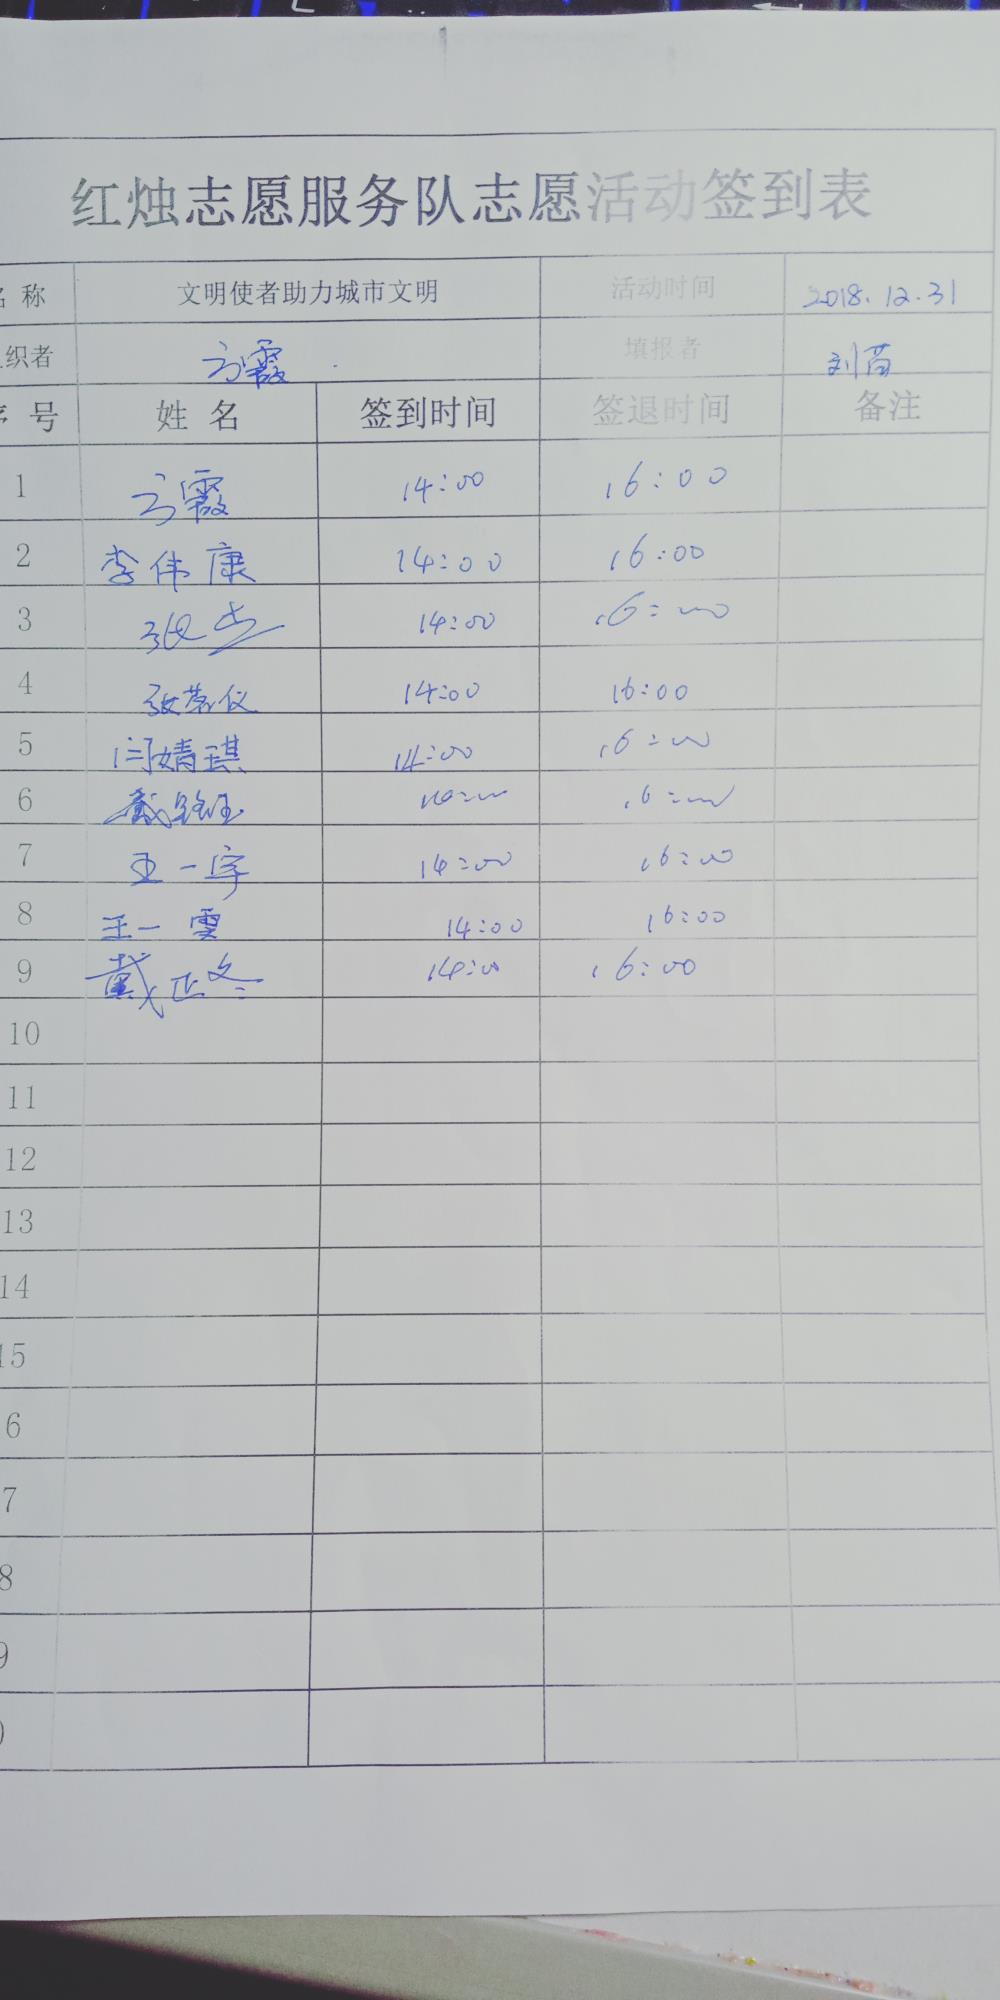 红烛志愿服务队志愿活动签到表
名 称 文明使者助力城市文明 活动时间 2018.12.31
组织者 方霞 填报者 刘苗
序 号 姓 名 签到时间 签退时间 备注
1 方霞 14:00 16:00
2 李伟康 14:00 16:00
3 张 14:00 16:00
4 张若仪 14:00 16:00
5 闫婧琪 14:00 16:00
6 戴 14:00 16:00
7 王一字 14:00 16:00
8 王一雯 14:00 16:00
9 戴正冬 14:00 16:00
10
11
12
13
14
15
6
7
8
9